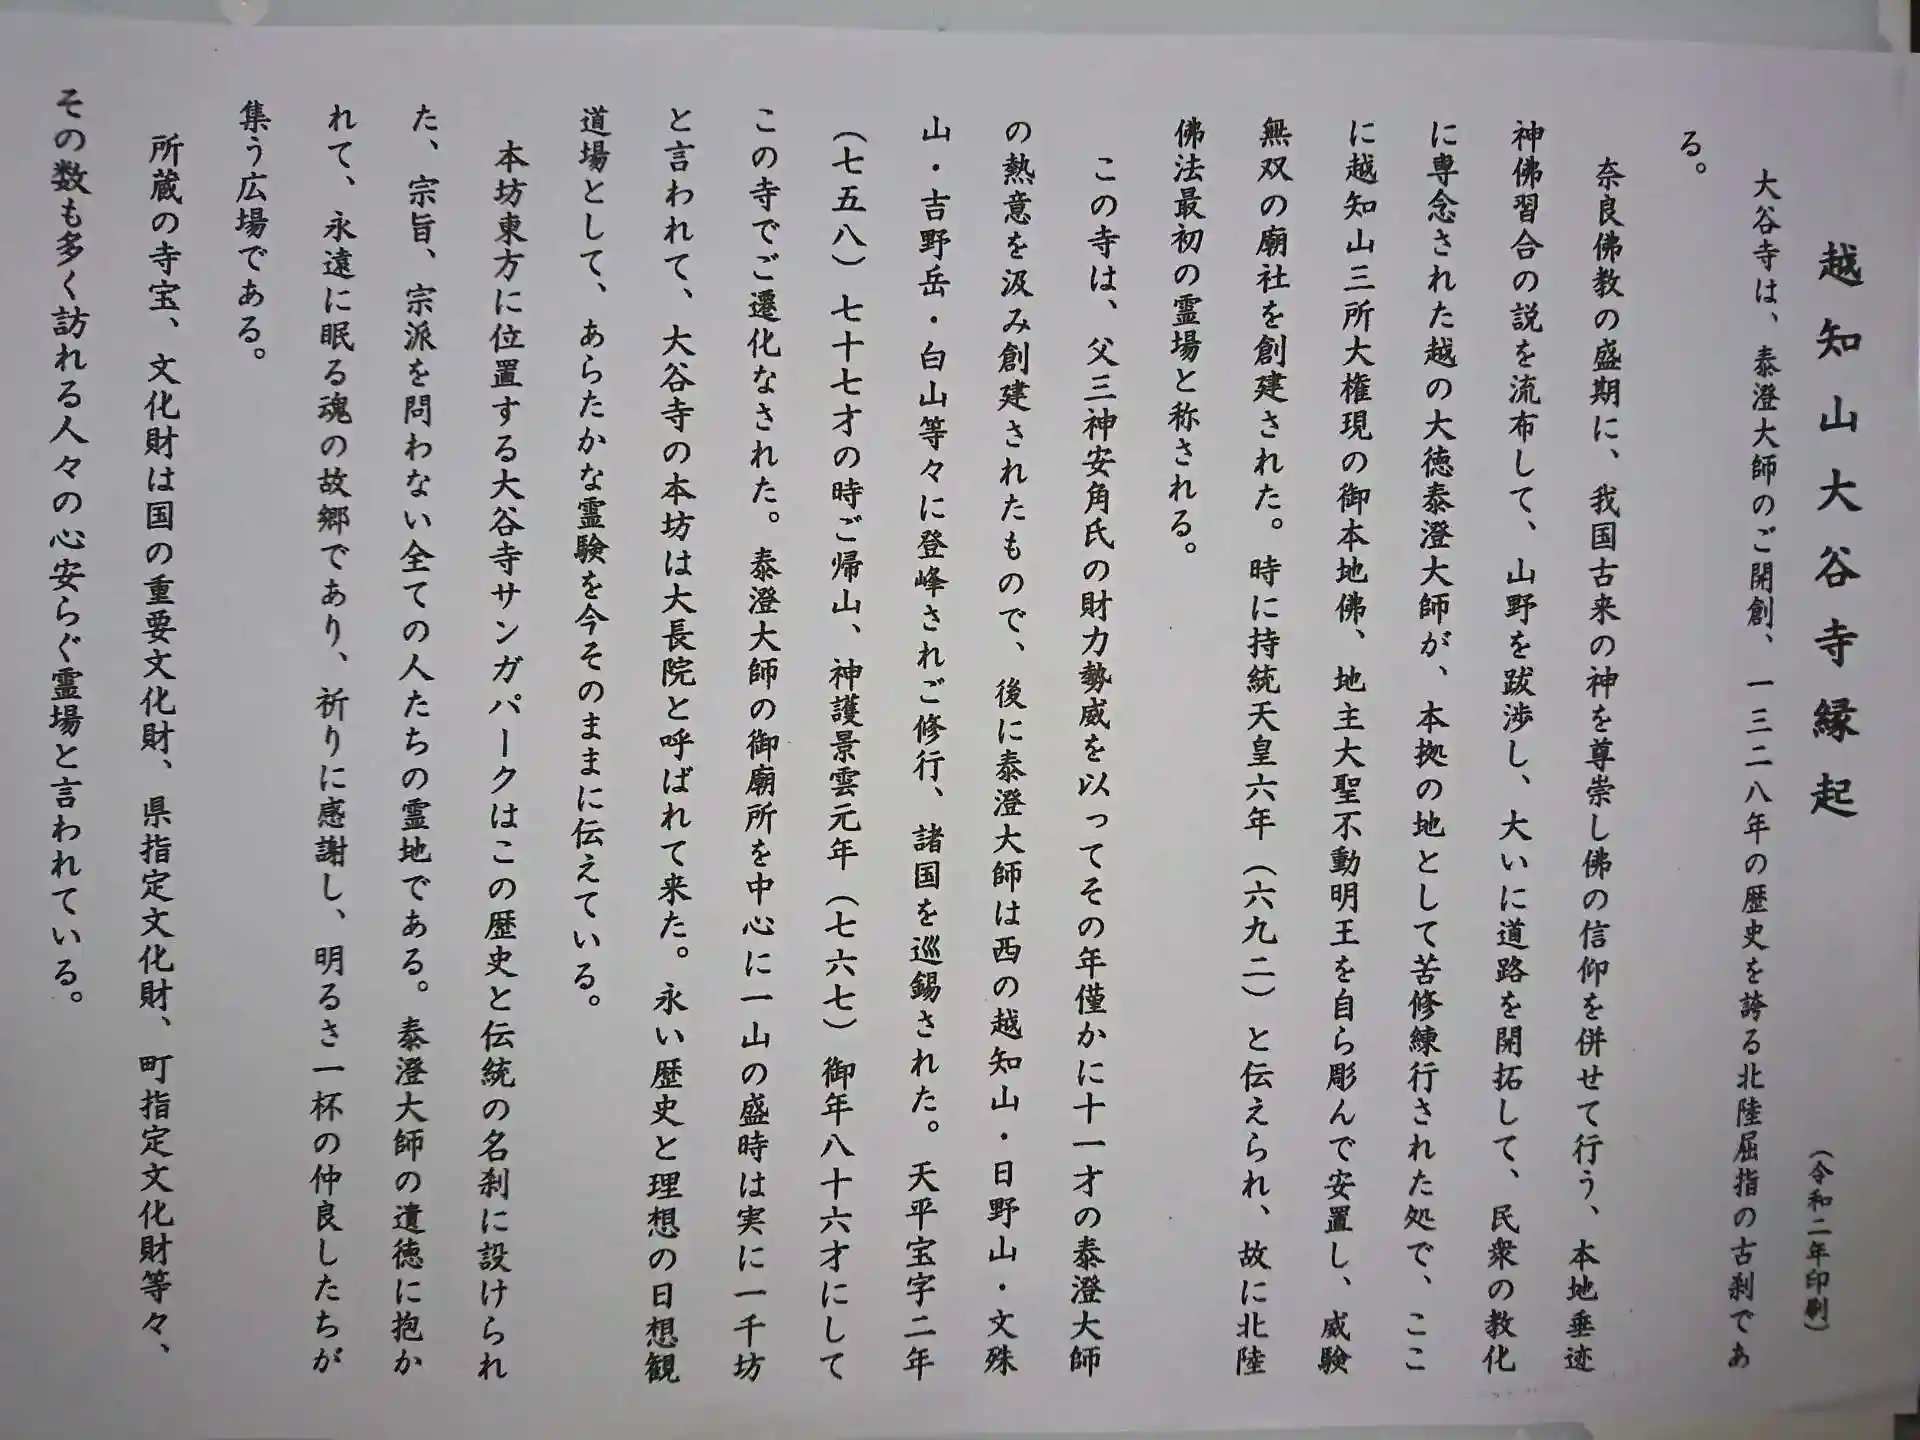 越知山大谷寺縁起
(令和二年印刷)
大谷寺は、泰澄大師のご開創、一三二八年の歴史を誇る北陸屈指の古刹であ
る。
奈良佛教の盛期に、我国古来の神を尊崇し佛の信仰を併せて行う、本地垂迹
神佛習合の説を流布して、山野を跋渉し、大いに道路を開拓して、民衆の教化
に専念された越の大徳泰澄大師が、本拠の地として苦修練行された処で、ここ
に越知山三所大権現の御本地佛、地主大聖不動明王を自ら彫んで安置し、威験
無双の廟社を創建された。時に持統天皇六年(六九二)と伝えられ、故に北陸
佛法最初の霊場と称される。
この寺は、父三神安角氏の財力勢威を以ってその年僅かに十一才の泰澄大師
の熱意を汲み創建されたもので、後に泰澄大師は西の越知山・日野山・文殊
山・吉野岳・白山等々に登峰されご修行、諸国を巡錫された。天平宝字二年
(七五八)七十七才の時ご帰山、神護景雲元年(七六七)御年八十六才にして
この寺でご遷化なされた。泰澄大師の御廟所を中心に一山の盛時は実に一千坊
と言われて、大谷寺の本坊は大長院と呼ばれて来た。永い歴史と理想の日想観
道場として、あらたかな霊験を今そのままに伝えている。
本坊東方に位置する大谷寺サンガパークはこの歴史と伝統の名刹に設けられ
た、宗旨、宗派を問わない全ての人たちの霊地である。泰澄大師の遺徳に抱か
れて、永遠に眠る魂の故郷であり、祈りに感謝し、明るさ一杯の仲良したちが
集う広場である。
所蔵の寺宝、文化財は国の重要文化財、県指定文化財、町指定文化財等々、
その数も多く訪れる人々の心安らぐ霊場と言われている。